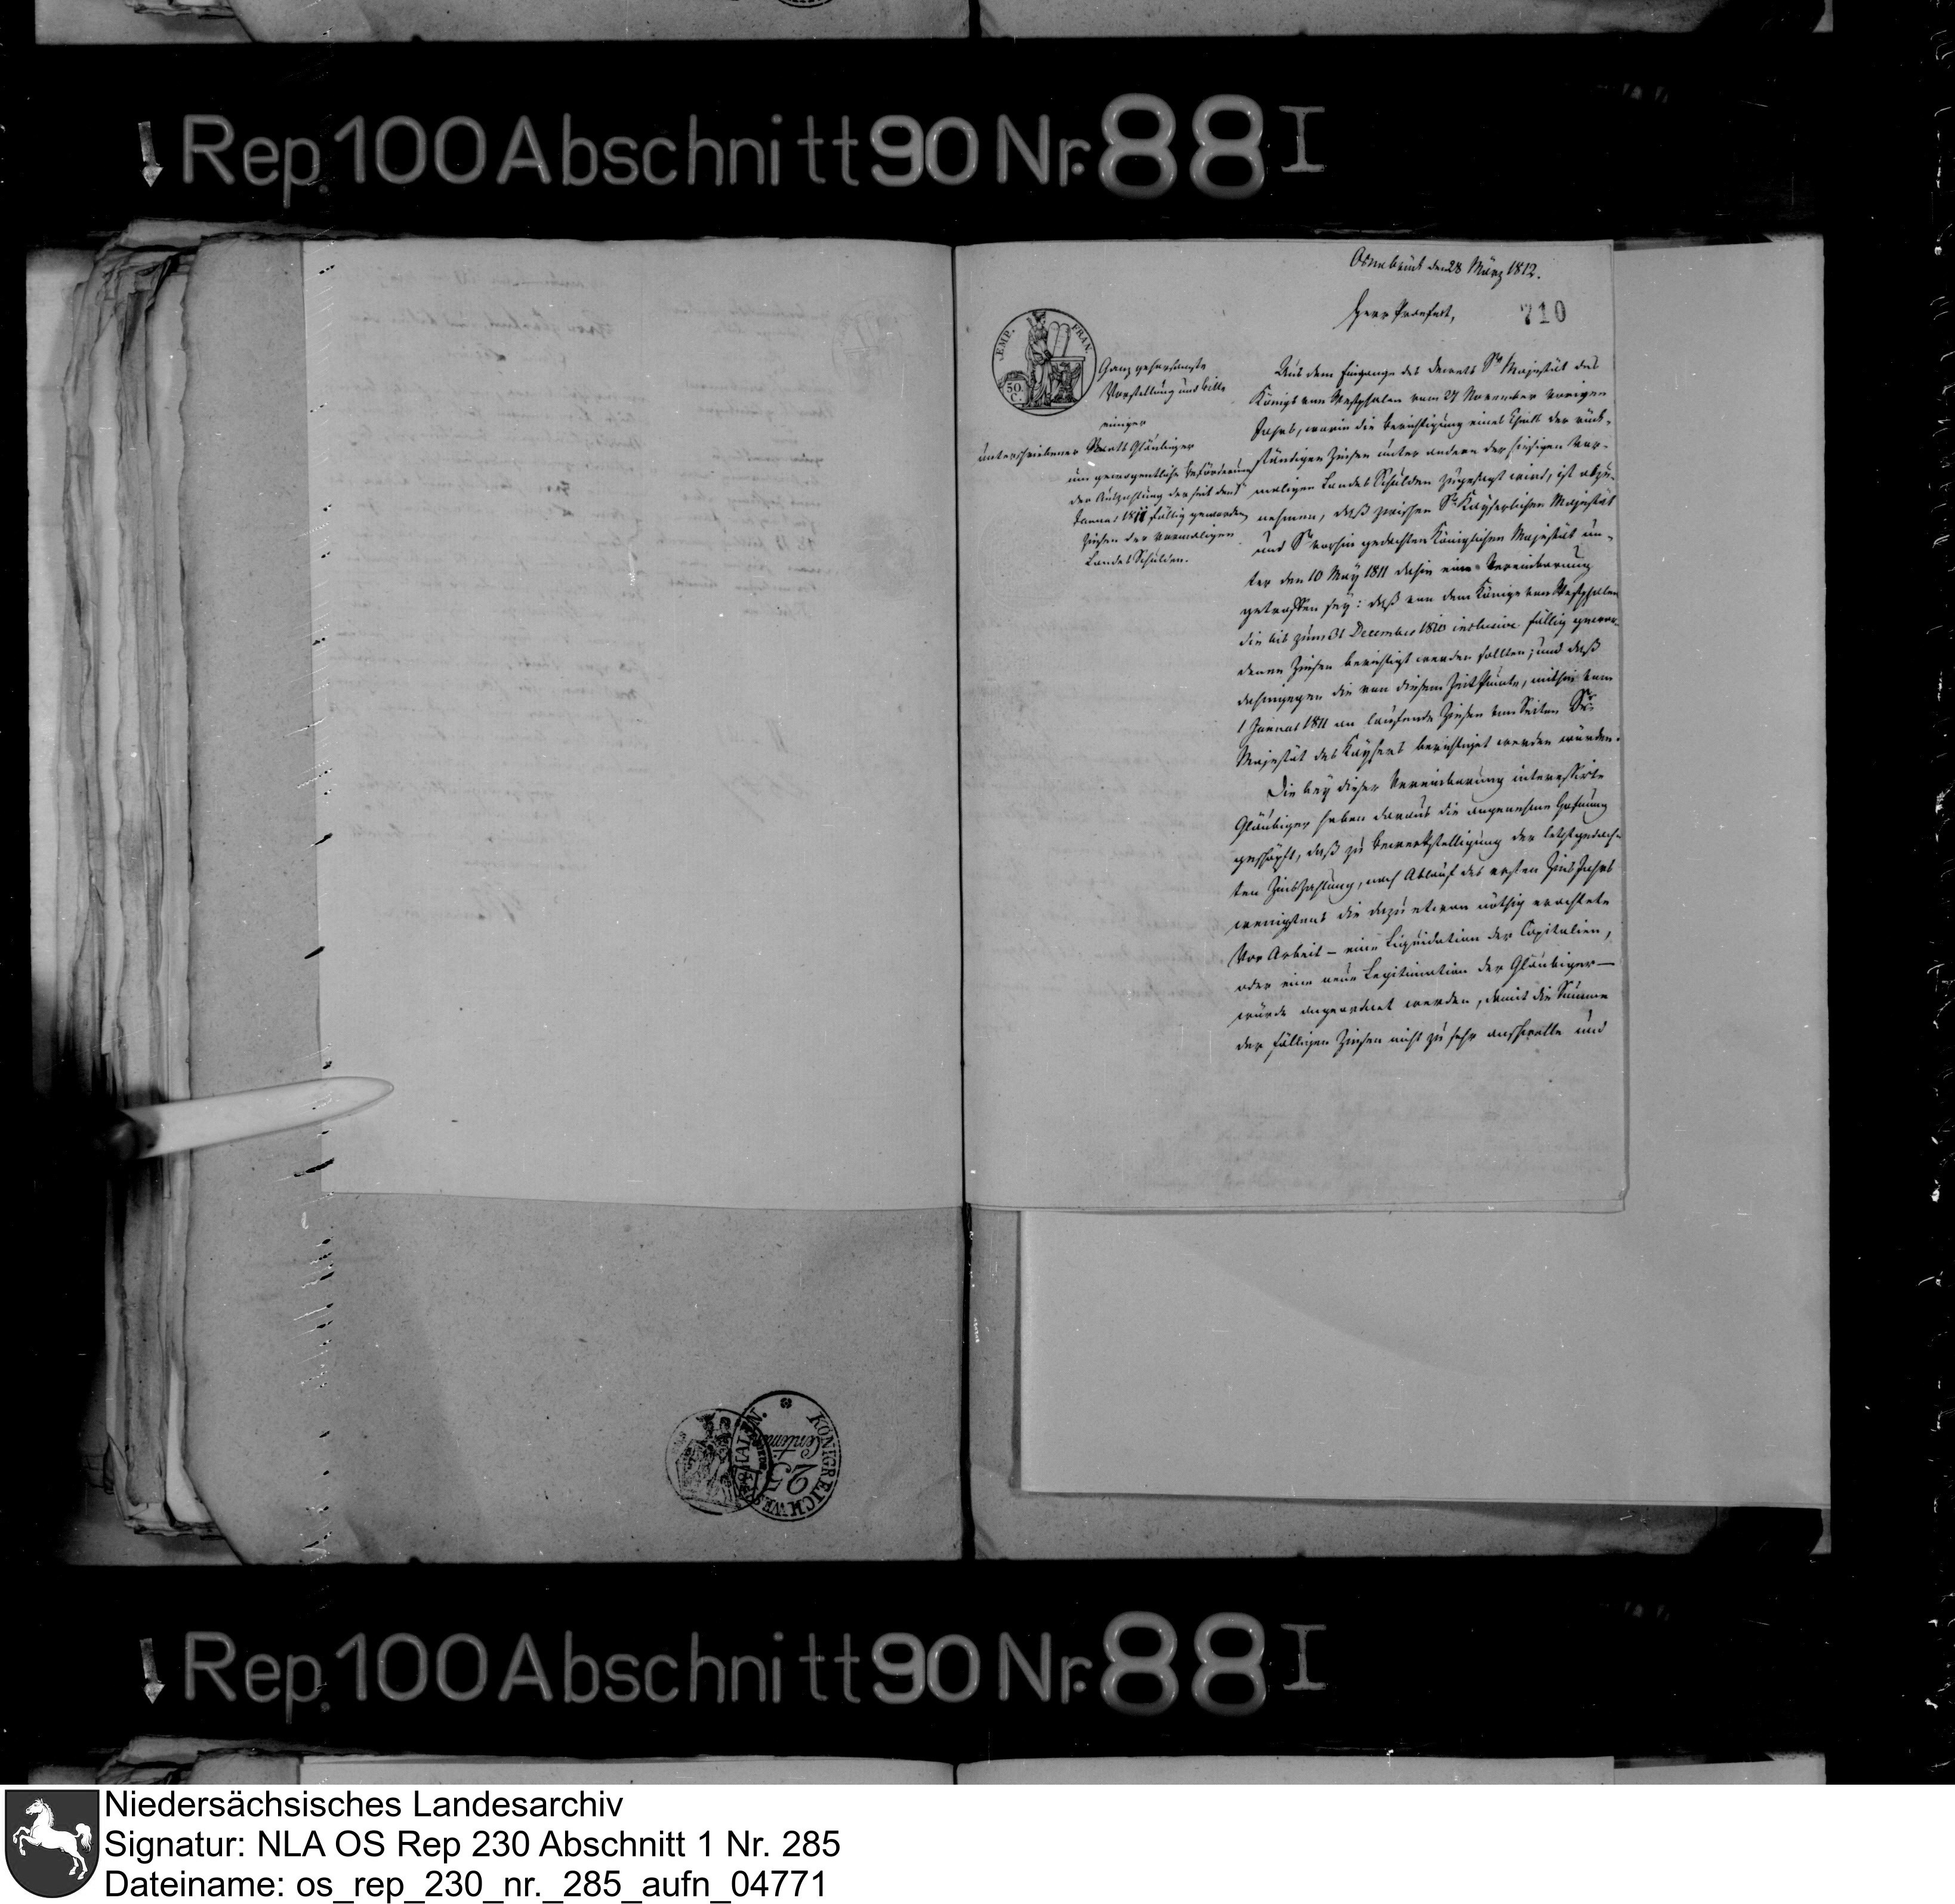 Rep. 100 Abschnitt 90 Nr. 88 I
Osnabrück den 28 März 1812.
Herr Praefect,
710
EMP. FRAN.
50. C.
Ganz gehorsamste
Vorstellung und Bitte
einiger
unterschriebener Staats Gläubiger
um hochgefällige Beförderung
der Auszahlung der seit dem 1
Januar 1811 fällig gewordenen
Zinsen der vormaligen
Landes Schulden.
Aus dem Eingange des Decrets Sr Majestät des
Königs von Westphalen vom 27 November vorigen
Jahrs, worin die Berichtigung eines Theils der rück-
ständigen Zinsen unter andern der hiesigen vor-
maligen Landes Schulden zugesagt wird, ist abzu-
nehmen, daß zwischen Sr Kayserlichen Majestät
und Sr vorhin gedachten Königlichen Majestät un-
ter den 10 May 1811 dahin eine Vereinbarung
getroffen sey: daß von dem Könige von Westphalen
die bis zum 31 December 1810 inclusive fällig gewor-
denen Zinsen berichtigt werden sollten; und daß
dahingegen die von diesem Zeit Punkte, mithin vom
1 Januar 1811 an laufende Zinsen von Seiten Sr
Majestät des Kaysers berichtiget werden würden.
Die bey dieser Vereinbarung interessirte
Gläubiger haben daraus die angenehme Hofnung
geschöpft, daß zu Bewerkstelligung der letztgedach-
ten Zinszahlung, nach Ablauf des ersten Zins Jahrs
wenigstens die dazu etwan nöthig erachtete
Vor Arbeit – eine Liquidation der Capitalien,
oder eine neue Legitimation der Gläubiger –
würde angeordnet werden, damit die Summe
der fälligen Zinsen nicht zu sehr anschwelle und
KÖNIGREICH WESTPHALEN.
25
Centimes
Rep. 100 Abschnitt 90 Nr. 88 I
Niedersächsisches Landesarchiv
Signatur: NLA OS Rep 230 Abschnitt 1 Nr. 285
Dateiname: os_rep_230_nr._285_aufn_04771